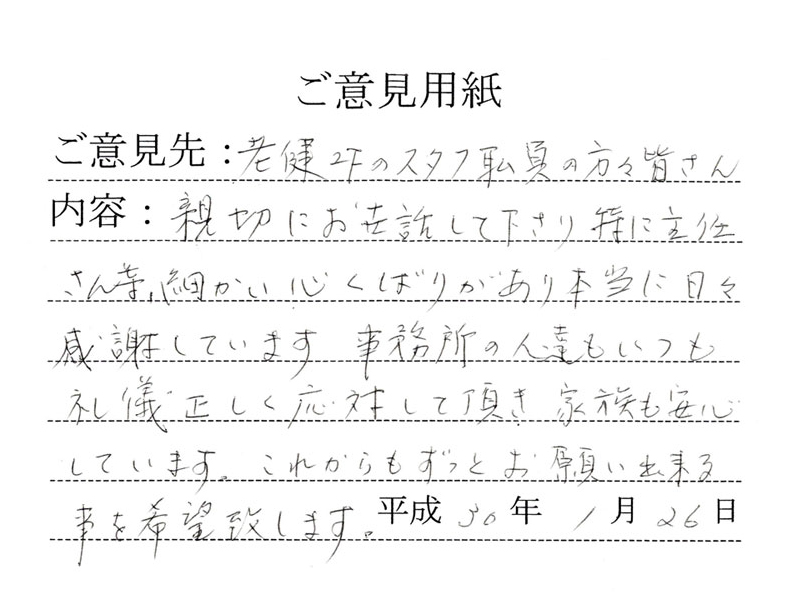 ご意見用紙
ご意見先：老健2Fのスタフ職員の方々皆さん
内容：親切にお世話して下さり特に主任
さん等、細かい心くばりがあり本当に日々
感謝しています 事務所の人達もいつも
礼儀正しく応対して頂き 家族も安心
しています。これからもずっとお願い出来る
事を希望致します。平成30年1月26日